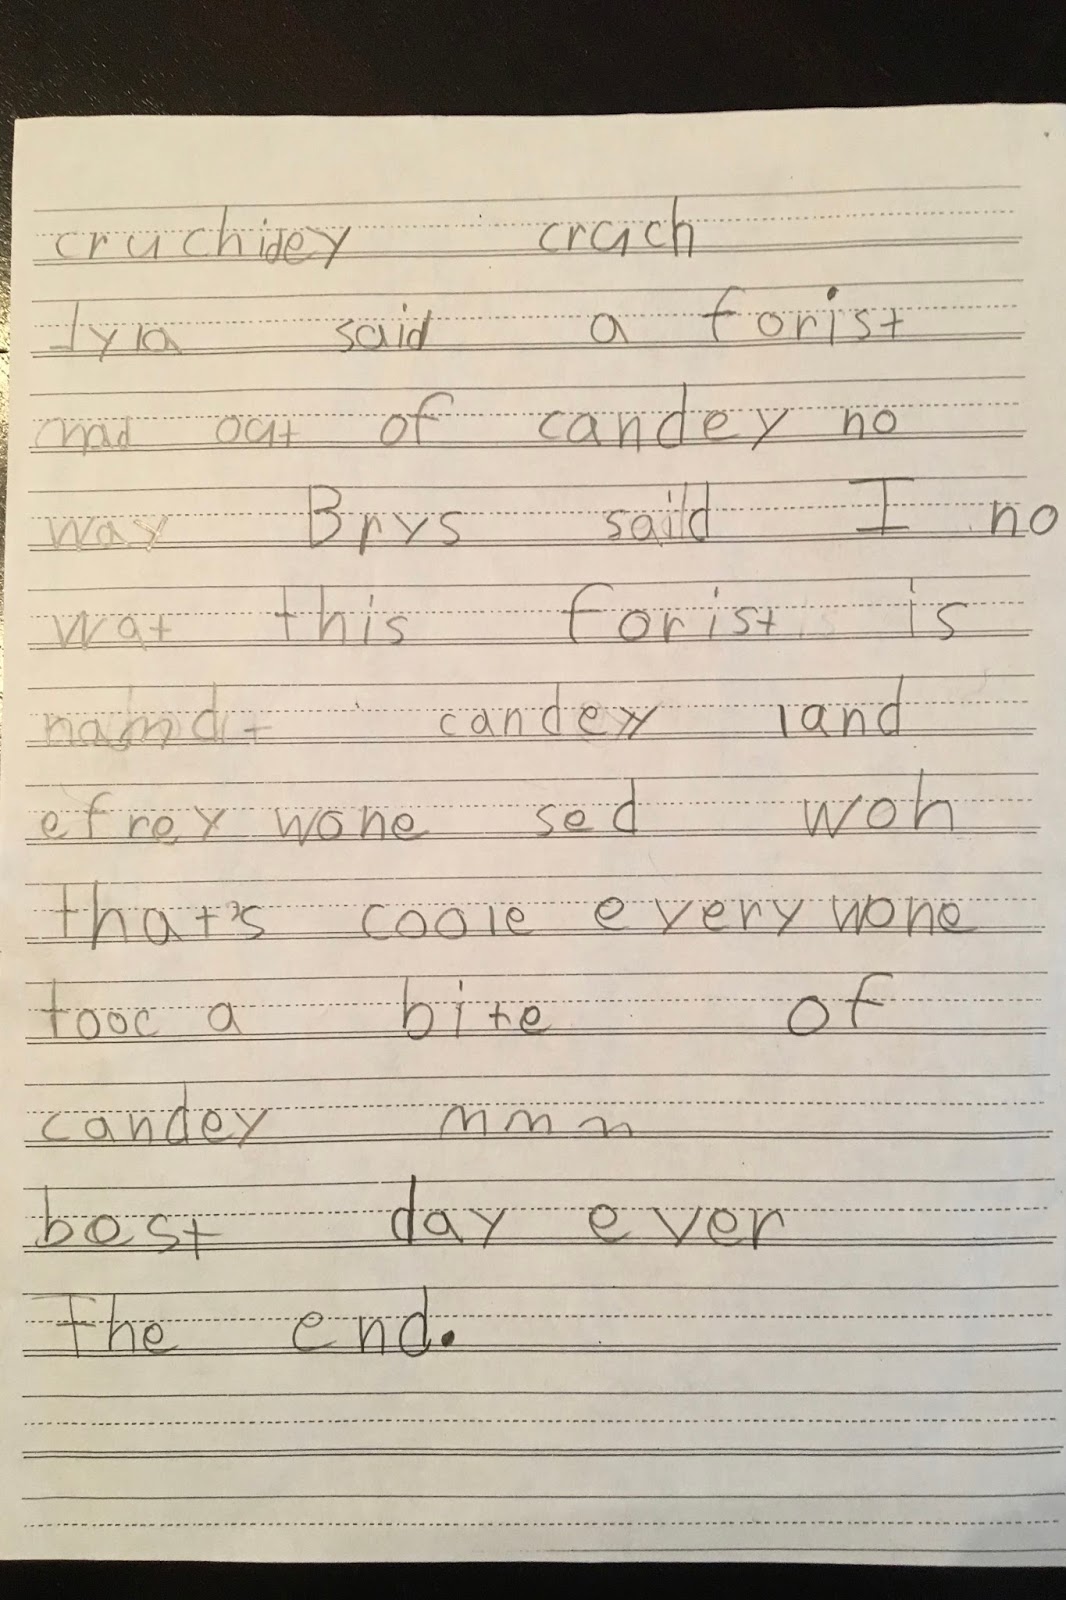 cruchidey cruch
Iyla said a forist
mad out of candey no
way Brys said I no
wat this forist is
namd it candey land
efrey wone sed woh
that's coole every wone
tooc a bite of
candey mmm
best day ever
The end.